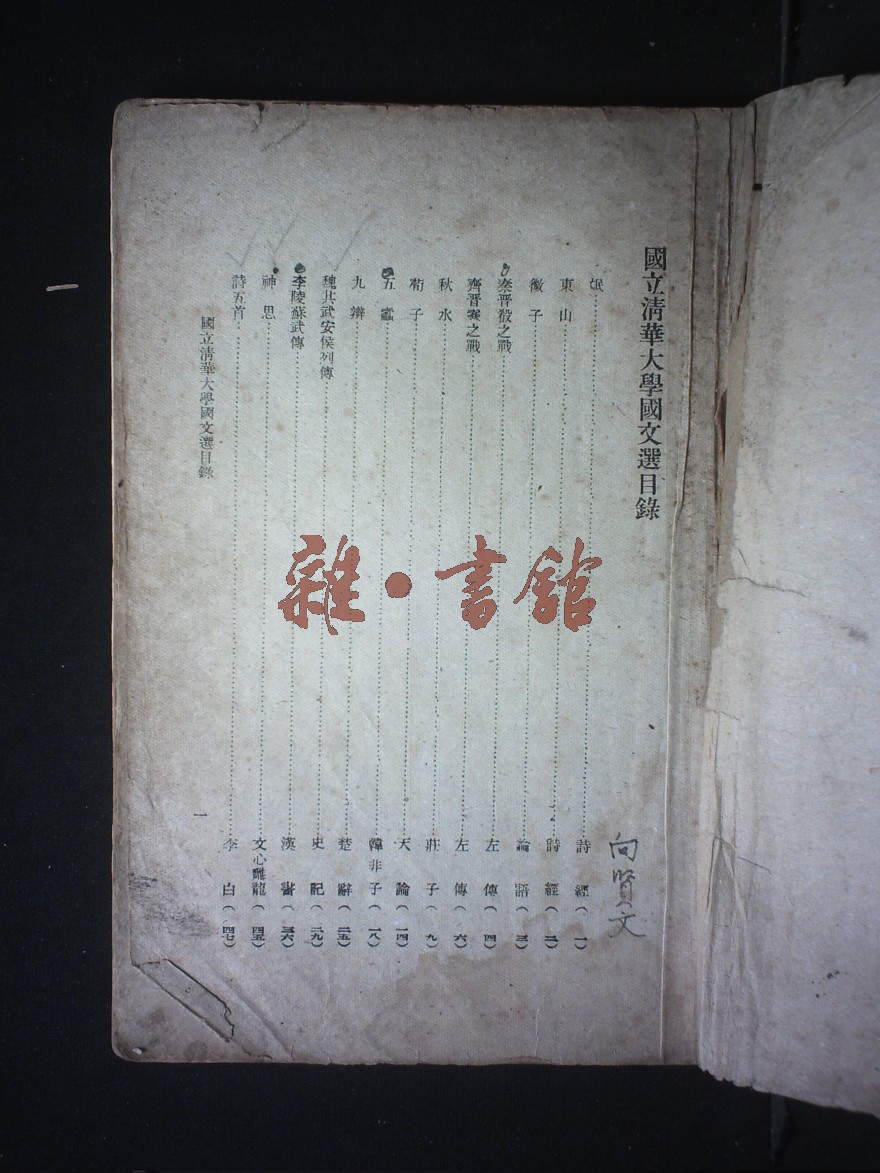 國立清華大學國文選目錄
向賢文
氓 詩經(一)
東山 詩經(二)
微子 論語(三)
秦晉殽之戰 左傳(四)
齊晉鞌之戰 左傳(六)
秋水 莊子(九)
荀子 天論(一四)
五蠹 韓非子(一八)
九辨 楚辭(二五)
魏其武安侯列傳 史記(二九)
李陵蘇武傳 漢書(三六)
神思 文心雕龍(四五)
詩五首 李白(四七)
國立清華大學國文選目錄 一
雜·書館